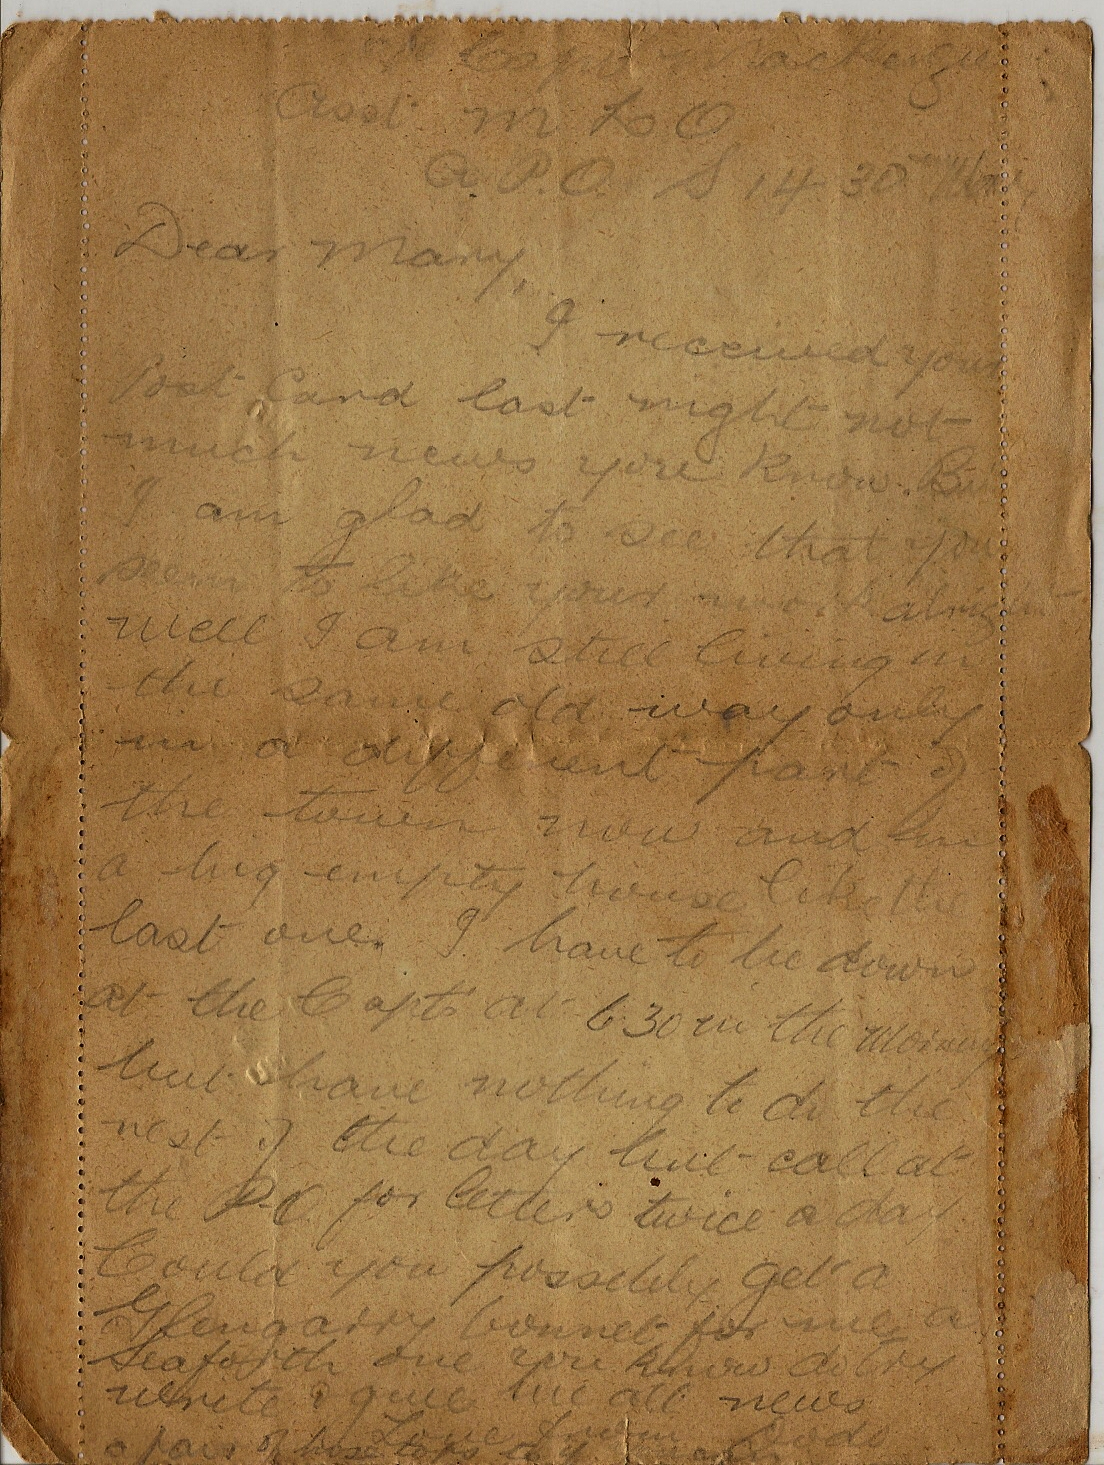 Capt Mackenzie
Asst M L O
A.P.O. S 14 30
Dear Mary,
I received your
Post Card last night not
much news you're know. But
I am glad to see that you
seem to like your work alright
well I am still living in
the same old way only
in a different part of
the town now and in
a big empty house like the
last one. I have to be down
at the Capts at 6 30 in the morning
but have nothing to do the
rest of the day but call at
the P.O for letters twice a day
Could you possibly get a
Glengarry bonnet for me, a
Seaforth one you know do try
write & give me all news
Love from
a pair of hose tops